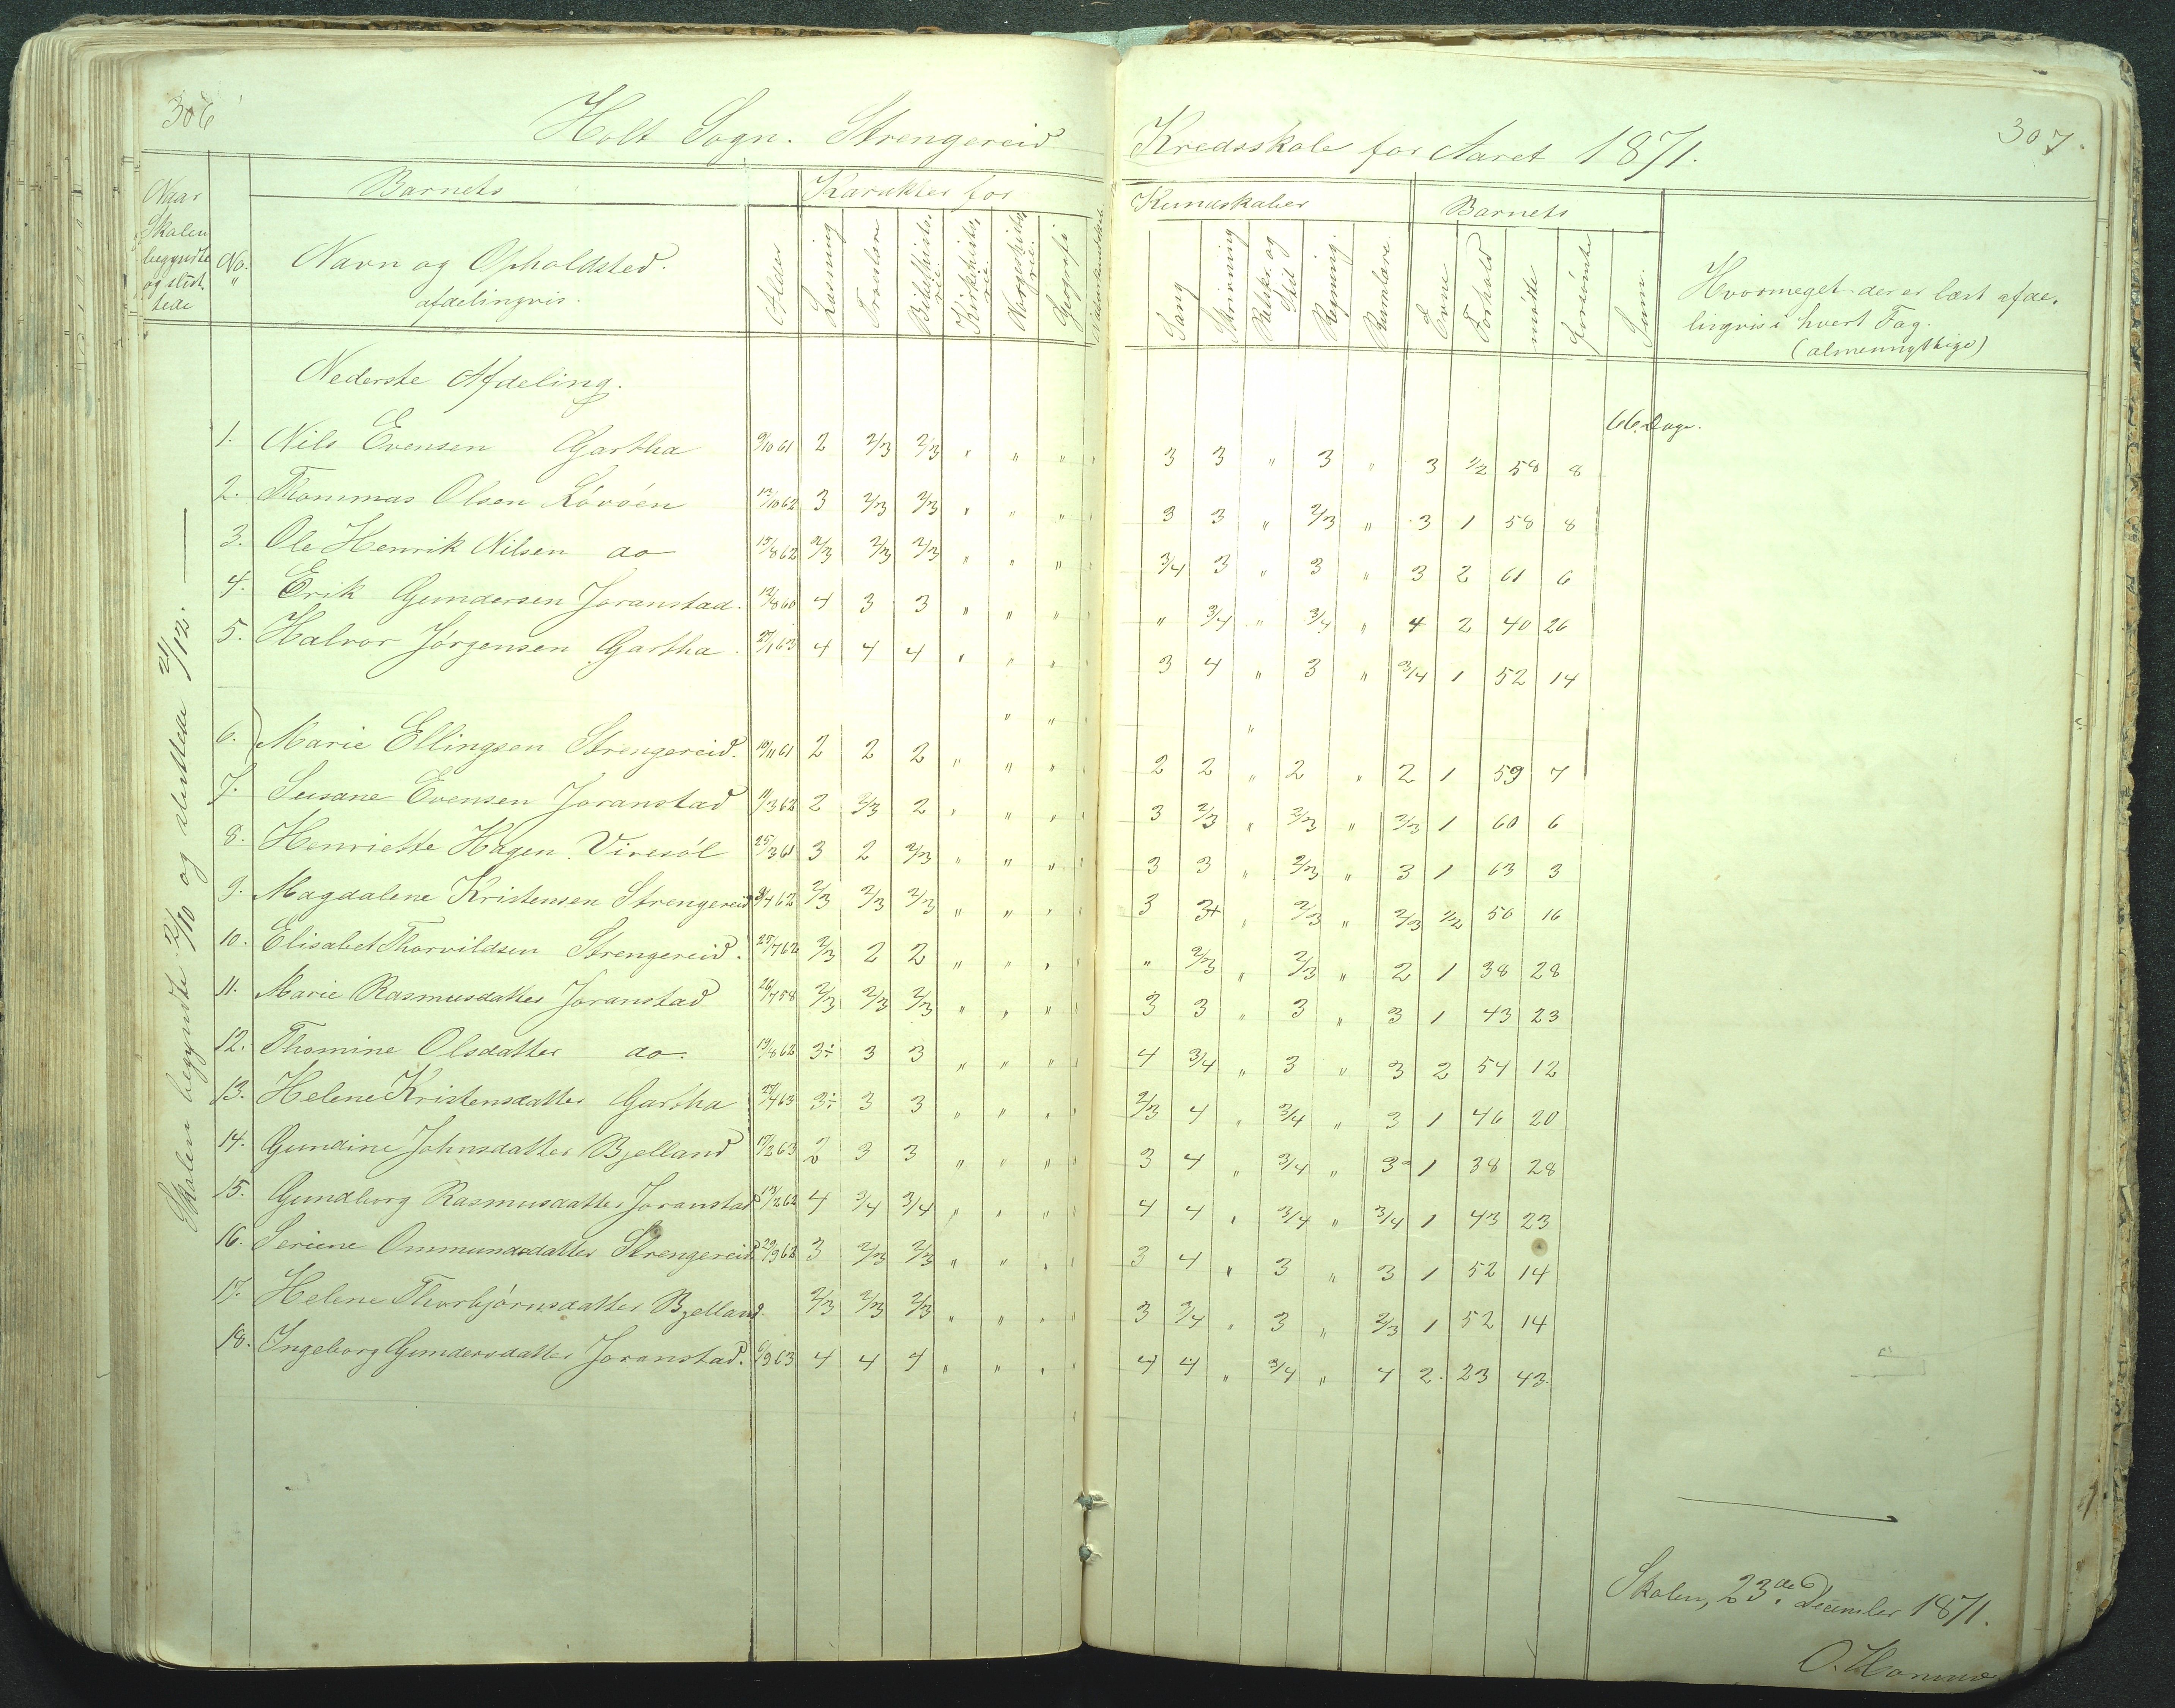 306
307.
Holt Sogn. Strengereid Kredsskole for Aaret 1871.
Naar Skolen begyndte og slut. tede
No.
Barnets
Navn og Opholdsted. afdelingvis.
Alder
Karakter for Kundskaber
Læsning
Troeslære
Bibelhisto. rie.
Kirkehisto. rie.
Norgeshisto. rie.
Geografi
Sang
Skrivning
Retskr. og Stil
Regning.
Rumlære.
Barnets
Evne
Forhold
mødte
forsømte
Sum.
Hvormeget der er læst afde. lingvis i hvert Fag.
Nederste Afdeling.
66 Dage.
1. Nils Evensen Gartha 9/10 61 2 2/3 2/3 " " " 3 3 " 3 " 3 1/2 58 8
2. Thommas Olsen Løvøen 13/10 62 3 2/3 2/3 " " " 3 3 " 2/3 " 3 1 58 8
3. Ole Henrik Nilsen do 15/8 62 2/3 2/3 2/3 " " " 3/4 3 " 3 " 3 2 61 6
4. Erik Gundersen Joranstad. 12/8 60 4 3 3 " " " " 3/4 " 3/4 " 4 2 40 26
5. Halvor Jørgensen Gartha. 27/1 63 4 4 4 " " " 3 4 " 3 " 3/4 1 52 14
" " "
6. Marie Ellingsen Strengereid. 10/11 61 2 2 2 " " " 2 2 " 2 " 2 1 59 7
7. Susane Evensen Joranstad 11/3 62 2 2/3 2 " " " 3 2/3 " 2/3 " 2/3 1 60 6
8. Henriette Hagen. Viresøl 25/3 61 3 2 2/3 " " " 3 3 " 2/3 " 3 1 63 3
9. Magdalene Kristensen Strengereid 9/4 62 2/3 2/3 2/3 " " " 3 3+ " 2/3 " 2/3 1/2 50 16
10. Elisabet Thorvildsen Strengereid. 27/7 62 2/3 2 2 " " " " 2/3 " 2/3 " 2 1 38 28
11. Marie Rasmusdatter Joranstad 26/7 58 2/3 2/3 2/3 " " " 3 3 " 3 " 3 1 43 23
12. Thomine Olsdatter do. 19/8 62 3÷ 3 3 " " " 4 3/4 " 3 " 3 2 54 12
13. Helene Kristensdatter Gartha 27/4 63 3÷ 3 3 " " " 2/3 4 " 3/4 " 3 1 46 20
14. Gundine Johnsdatter Bjelland 17/2 63 2 3 3 " " " 3 4 " 3/4 " 3 1 38 28
15. Gundborg Rasmusdatter Joranstad 13/2 62 4 3/4 3/4 " " " 4 4 " 3/4 " 3/4 1 43 23
16. Seriene Ommundsdatter Strengereid 29/9 62 3 2/3 2/3 " " " 3 4 " 3 " 3 1 52 14
17. Helene Thorbjørnsdatter Bjelland. 2/3 2/3 2/3 " " " 3 3/4 " 3 " 2/3 1 52 14
18. Ingeborg Gundersdatter Joranstad. 6/9 63 4 4 4 " " " 4 4 " 3/4 " 4 2. 23 43.
Skolen begyndte 2/10 og sluttede 21/12.
Skolen, 23de December 1871.